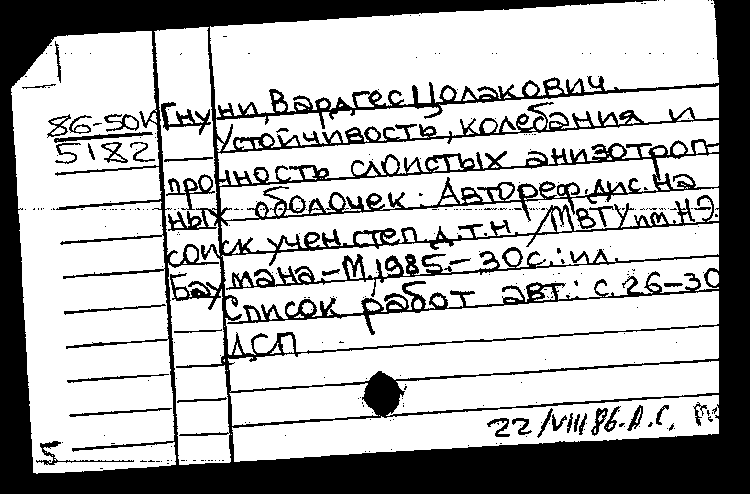 86-50К
5182
Гнуни, Вардгес Цолакович.
Устойчивость, колебания и
прочность слоистых анизотроп-
ных оболочек: Автореф. дис. на
соиск учен. степ д.т.н. /МВТУ им. Н.Э.
Баумана.-М., 1985.- 30с.: ил.
Список работ авт.: с. 26-30
ДСП
22/VIII 86. А.С.
5